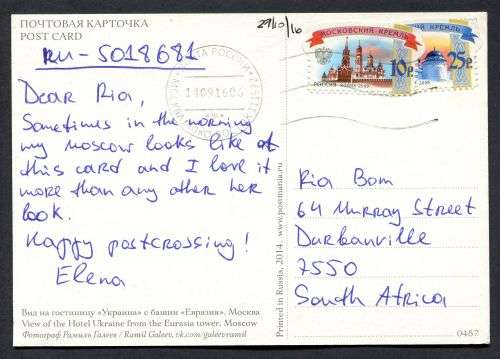 ПОЧТОВАЯ КАРТОЧКА
POST CARD
RU-5018681
29/10/16
МОСКОВСКИЙ КРЕМЛЬ
КРЕМЛЬ
10р
25р
ПОЧТА РОССИИ
Dear Ria,
Sometimes in the morning
my Moscow looks like at
this card and I love it
more than any other her
look.
Happy postcrossing!
Elena
Ria Bom
64 Murray Street
Durbanville
7550
South Africa
Printed in Russia, 2014. www.postmania.ru
Вид на гостиницу «Украина» с башни «Евразия», Москва
View of the Hotel Ukraine from the Eurasia tower, Moscow
Фотограф Рамиль Галеев / Ramil Galeev, vk.com/galeevramil
0487